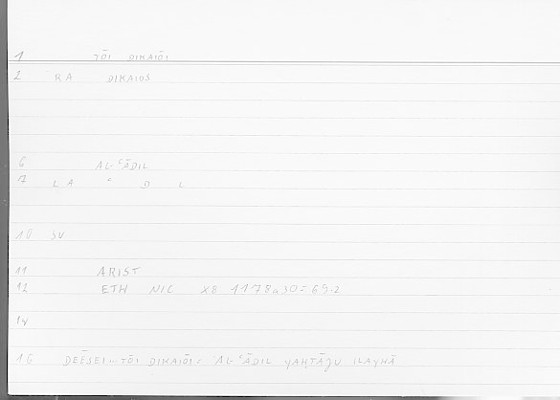 1 TŌI DIKAIŌI
2 RA DIKAIOS
6 AL-ʿĀDIL
7 LA ʿ D L
10 SV
11 ARIST
12 ETH NIC XE 1178a30-
IV
16 DEĒSEI... TŌI DIKAIŌI: AL-ʿĀDIL YAḤTĀJU ILAYHĀ